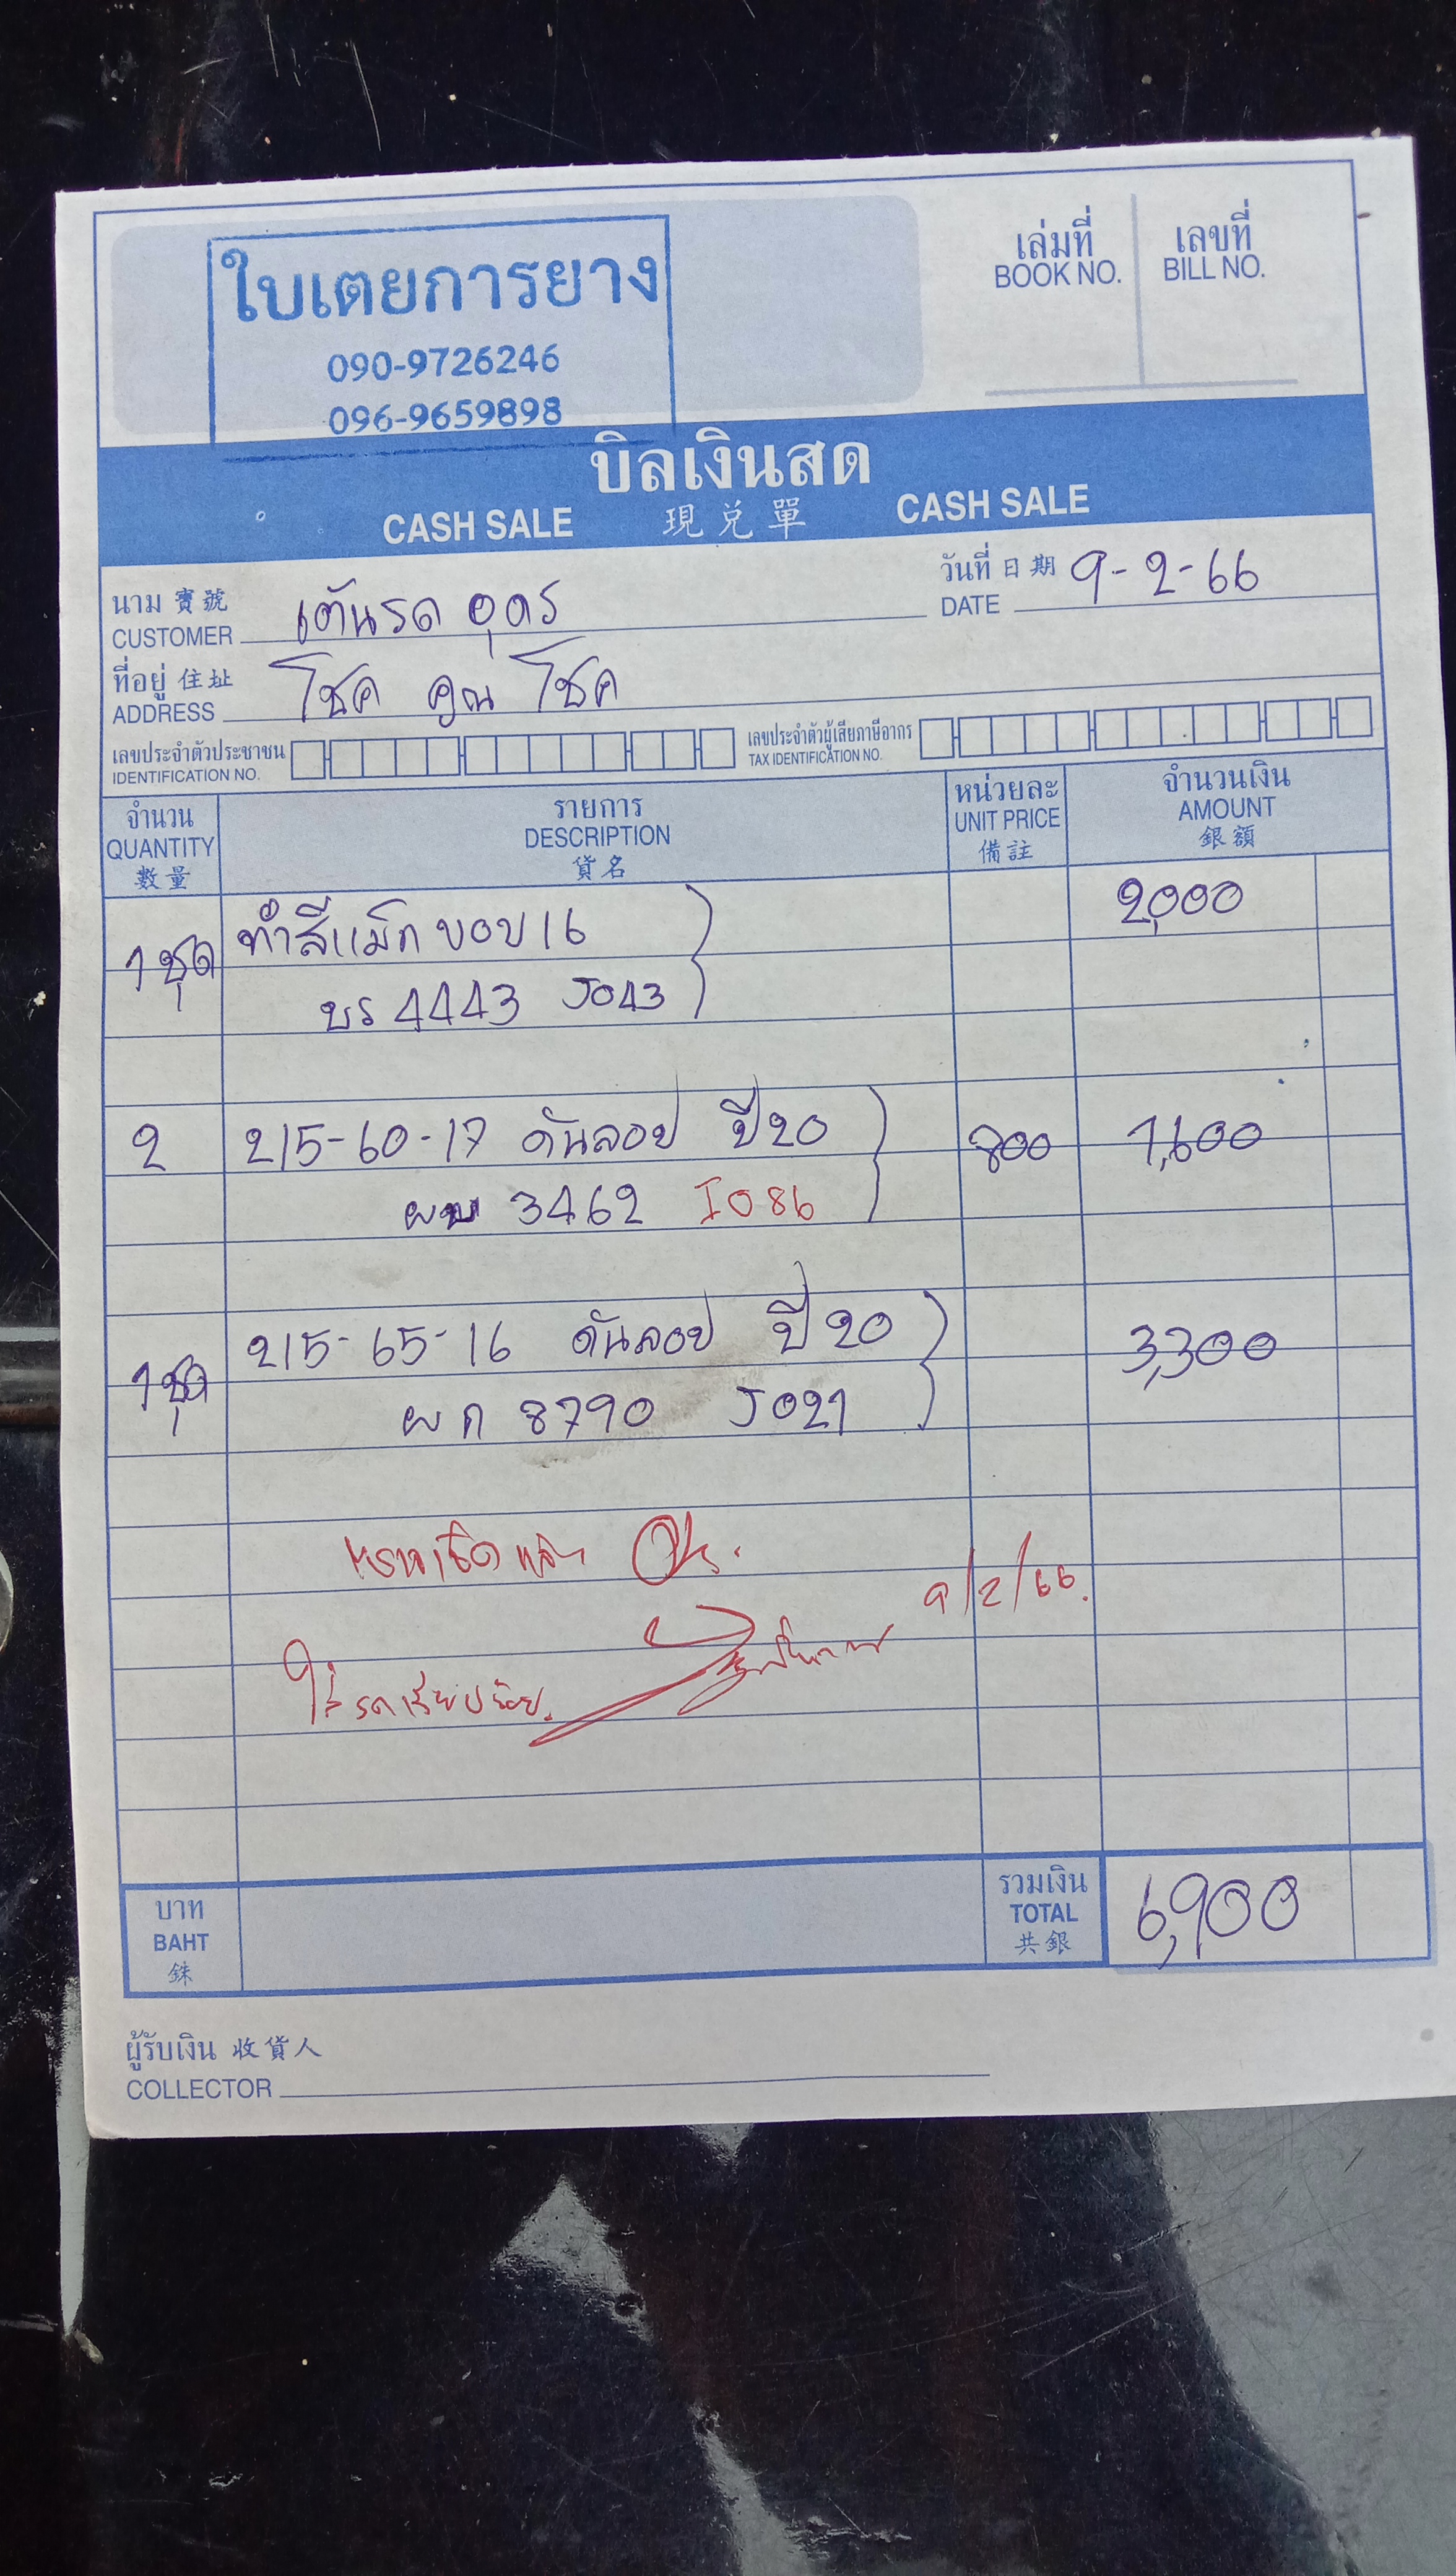 ใบเตยการยาง
090-9726246
096-9659898
เล่มที่ เลขที่
BOOK NO. BILL NO.
บิลเงินสด
CASH SALE 現兌單 CASH SALE
นาม 寶號 วันที่ 日期 9-2-66
CUSTOMER เต้นรถ อุดร DATE
ที่อยู่ 住址
ADDRESS โชค คูณ โชค
เลขประจำตัวประชาชน เลขประจำตัวผู้เสียภาษีอากร
IDENTIFICATION NO. TAX IDENTIFICATION NO.
จำนวน รายการ หน่วยละ จำนวนเงิน
QUANTITY DESCRIPTION UNIT PRICE AMOUNT
數量 貨名 備註 銀額
1 ชุด ทำสีแม็ก ขอบ 16 2,000
บร 4443 J043
2 215-60-17 ดันลอป ปี 20 800 1,600
ผบ 3462 I086
1 ชุด 215-65-16 ดันลอป ปี 20 3,300
ผก 8790 J021
9/2/66.
ใส่รถเรียบร้อย.
บาท รวมเงิน
BAHT TOTAL 6,900
銖 共銀
ผู้รับเงิน 收貨人
COLLECTOR